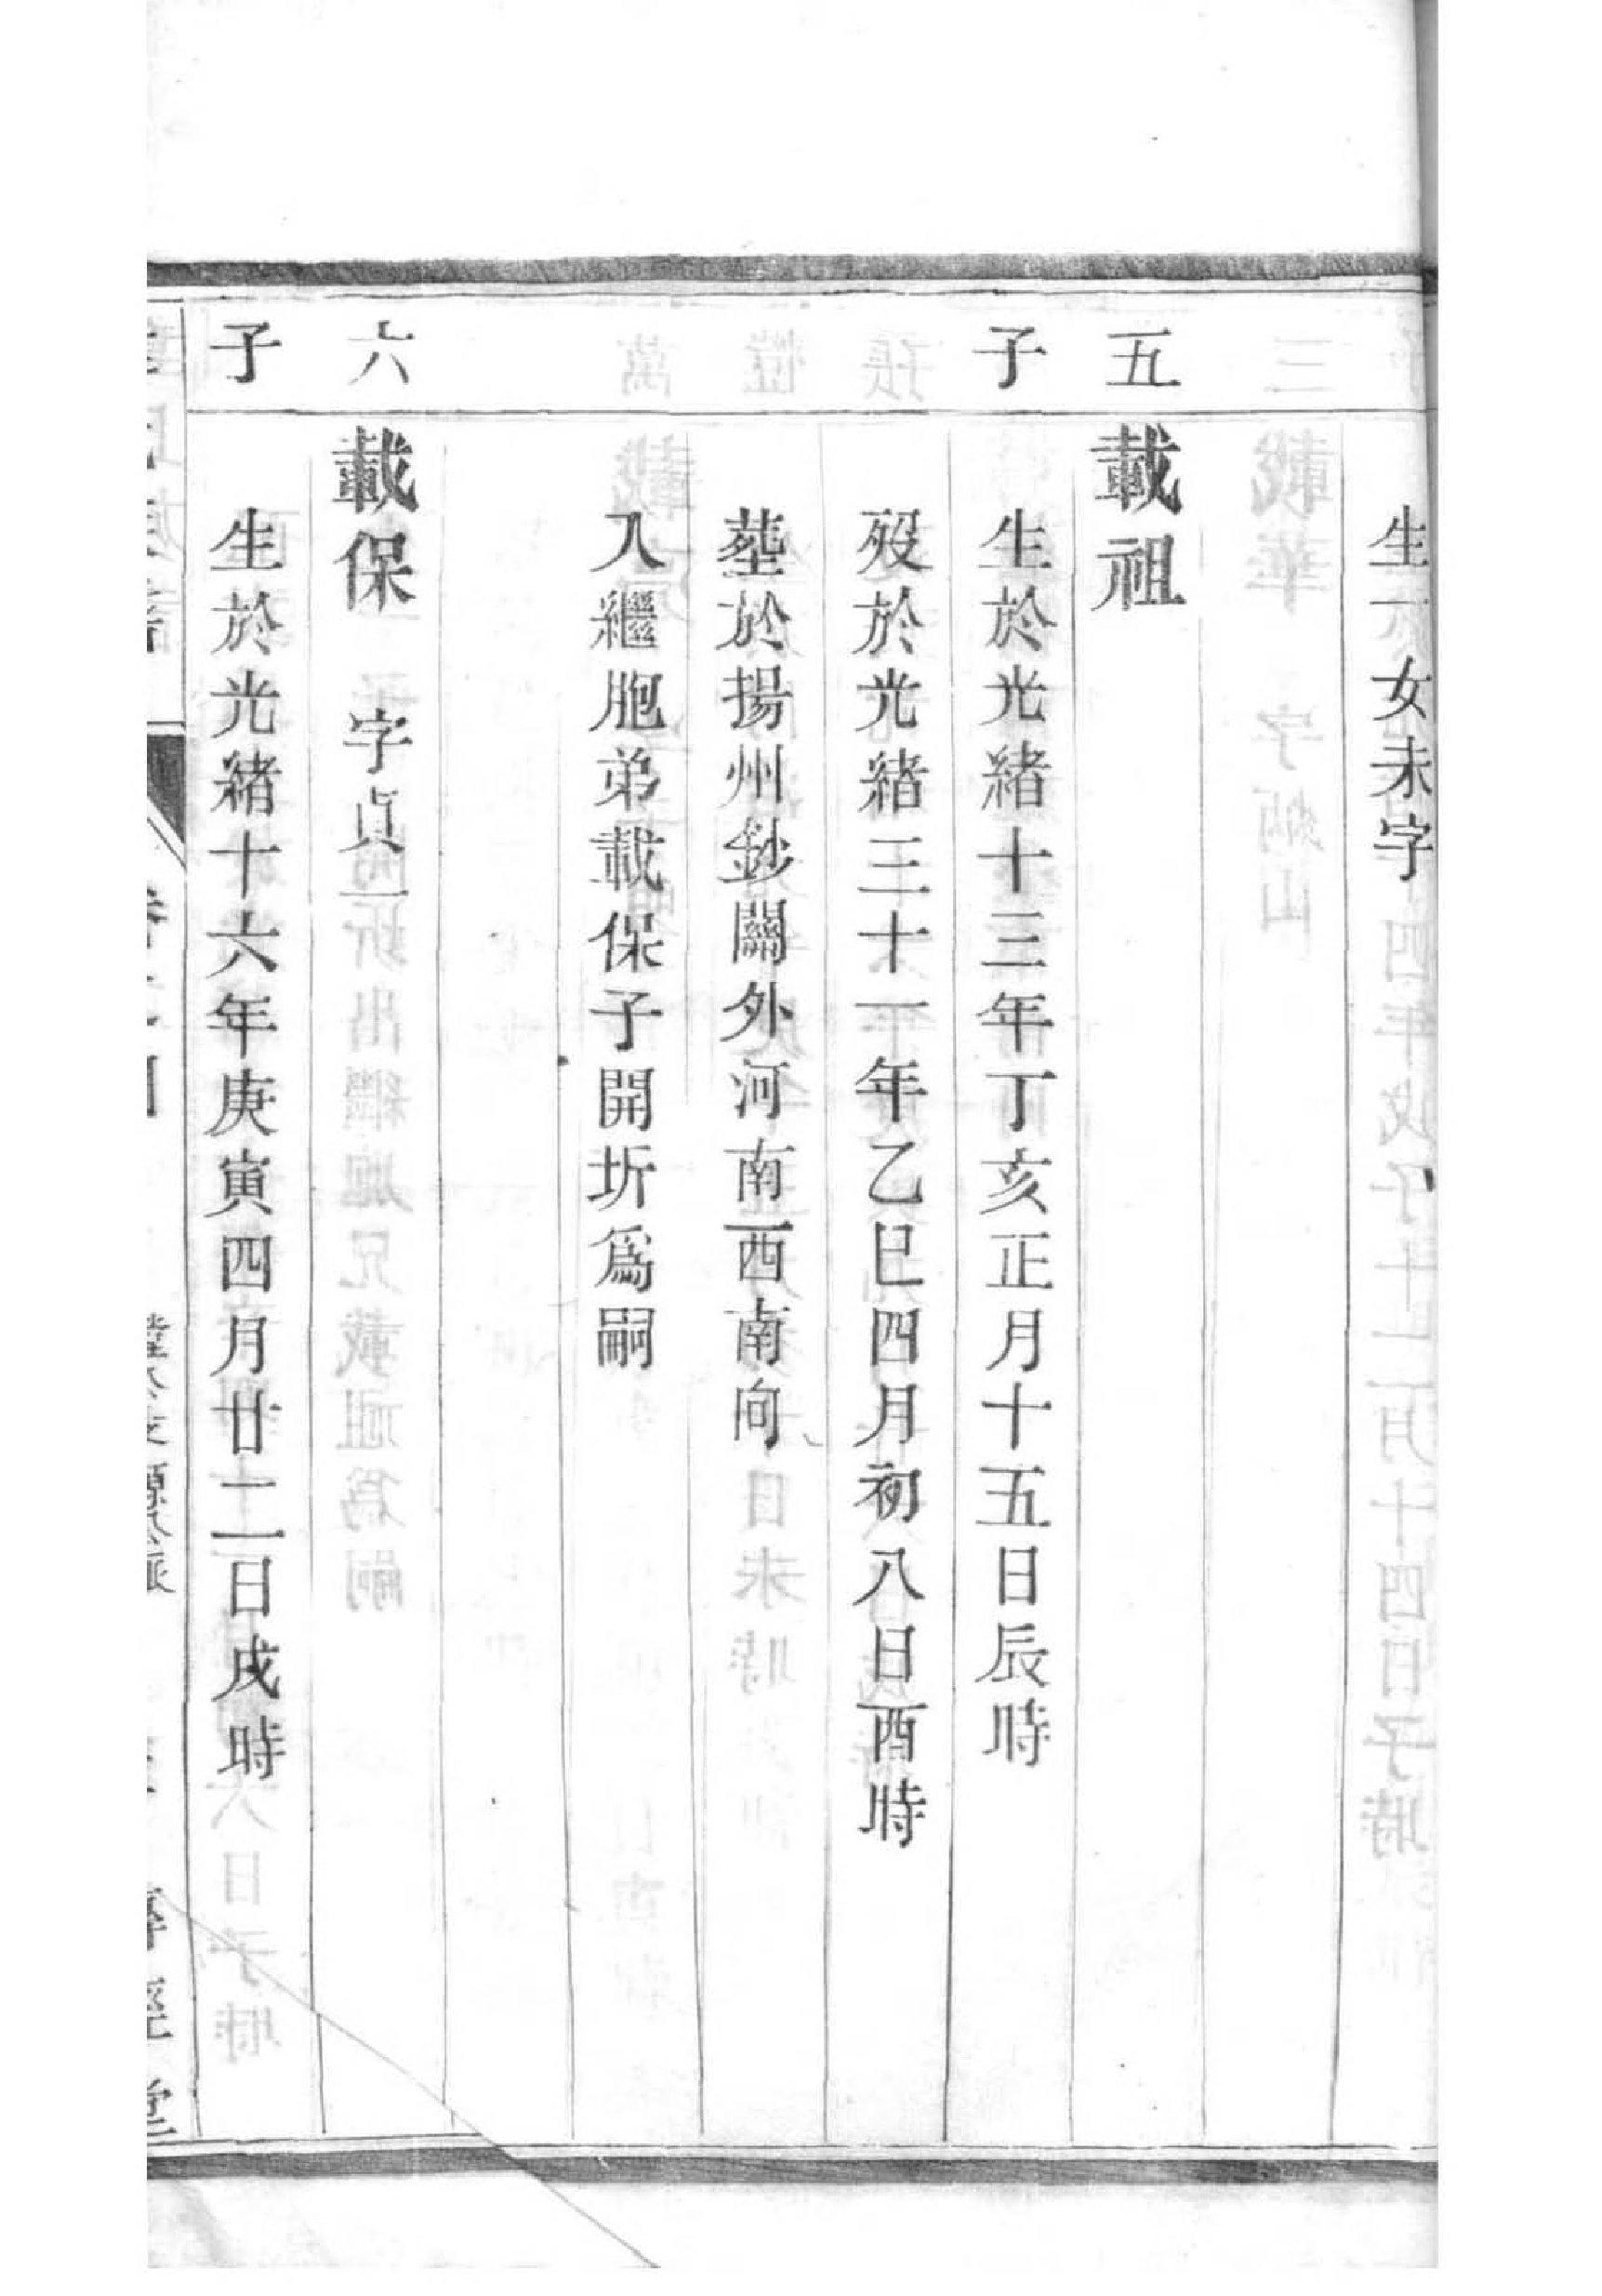 生一女未字
五 載祖
子 生於光緒十三年丁亥正月十五日辰時
歿於光緒三十一年乙巳四月初八日酉時
塟於揚州鈔關外河南西南向
入繼胞弟載保子開圻爲嗣
六 載保 字貞一
子 生於光緒十六年庚寅四月廿二日戌時